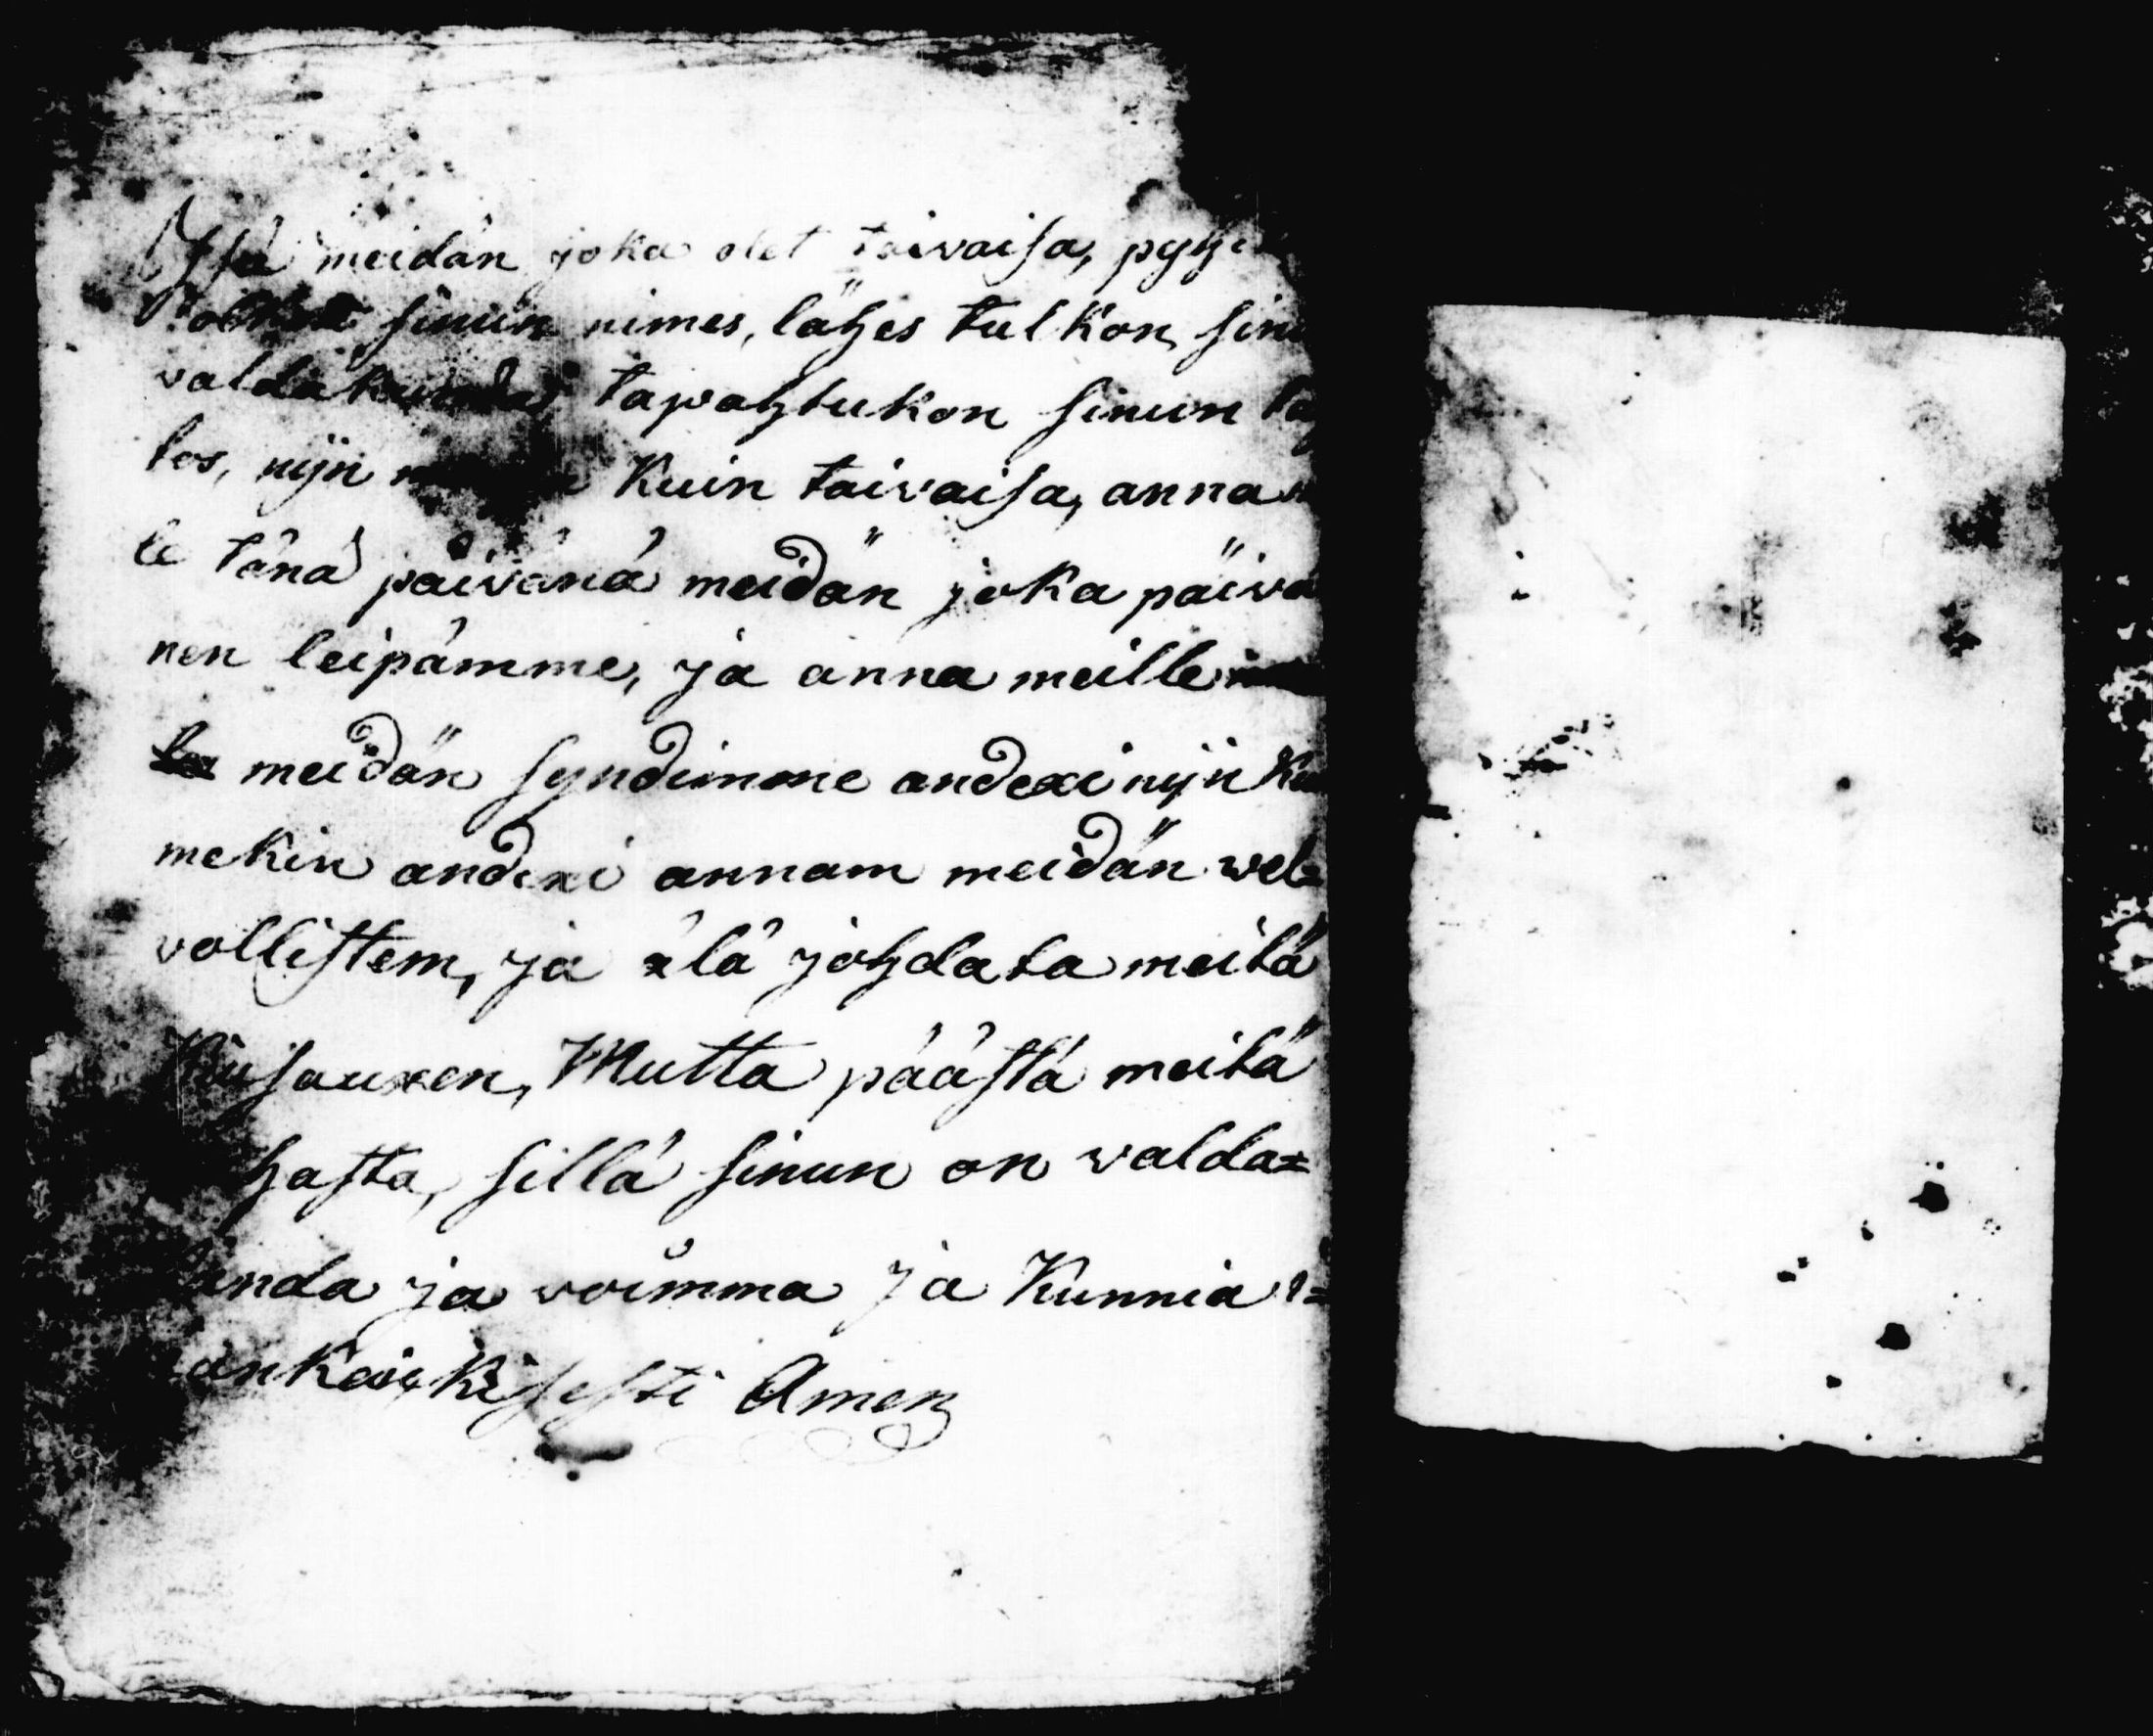 Isä meidän joka olet taivaisa, pyhi
olkon sinun nimes, lähes tulkon, sinu
valdakundas, tapahtukon sinun tah
tos, nijn kuin taivaisa, anna
le tänä päivänä meidän joka päivä
nen leipämme, ja anna meille
meidän syndimme andexi nijn Ku
mekin andexi annam meidän wel=
vollistem, ja älä johdata meitä
Kiusauxen, Mutta päästä meitä
hasta, sillä sinun on valda=
unda ja voimma ja Kunnia i=
änkaickisesti Amen